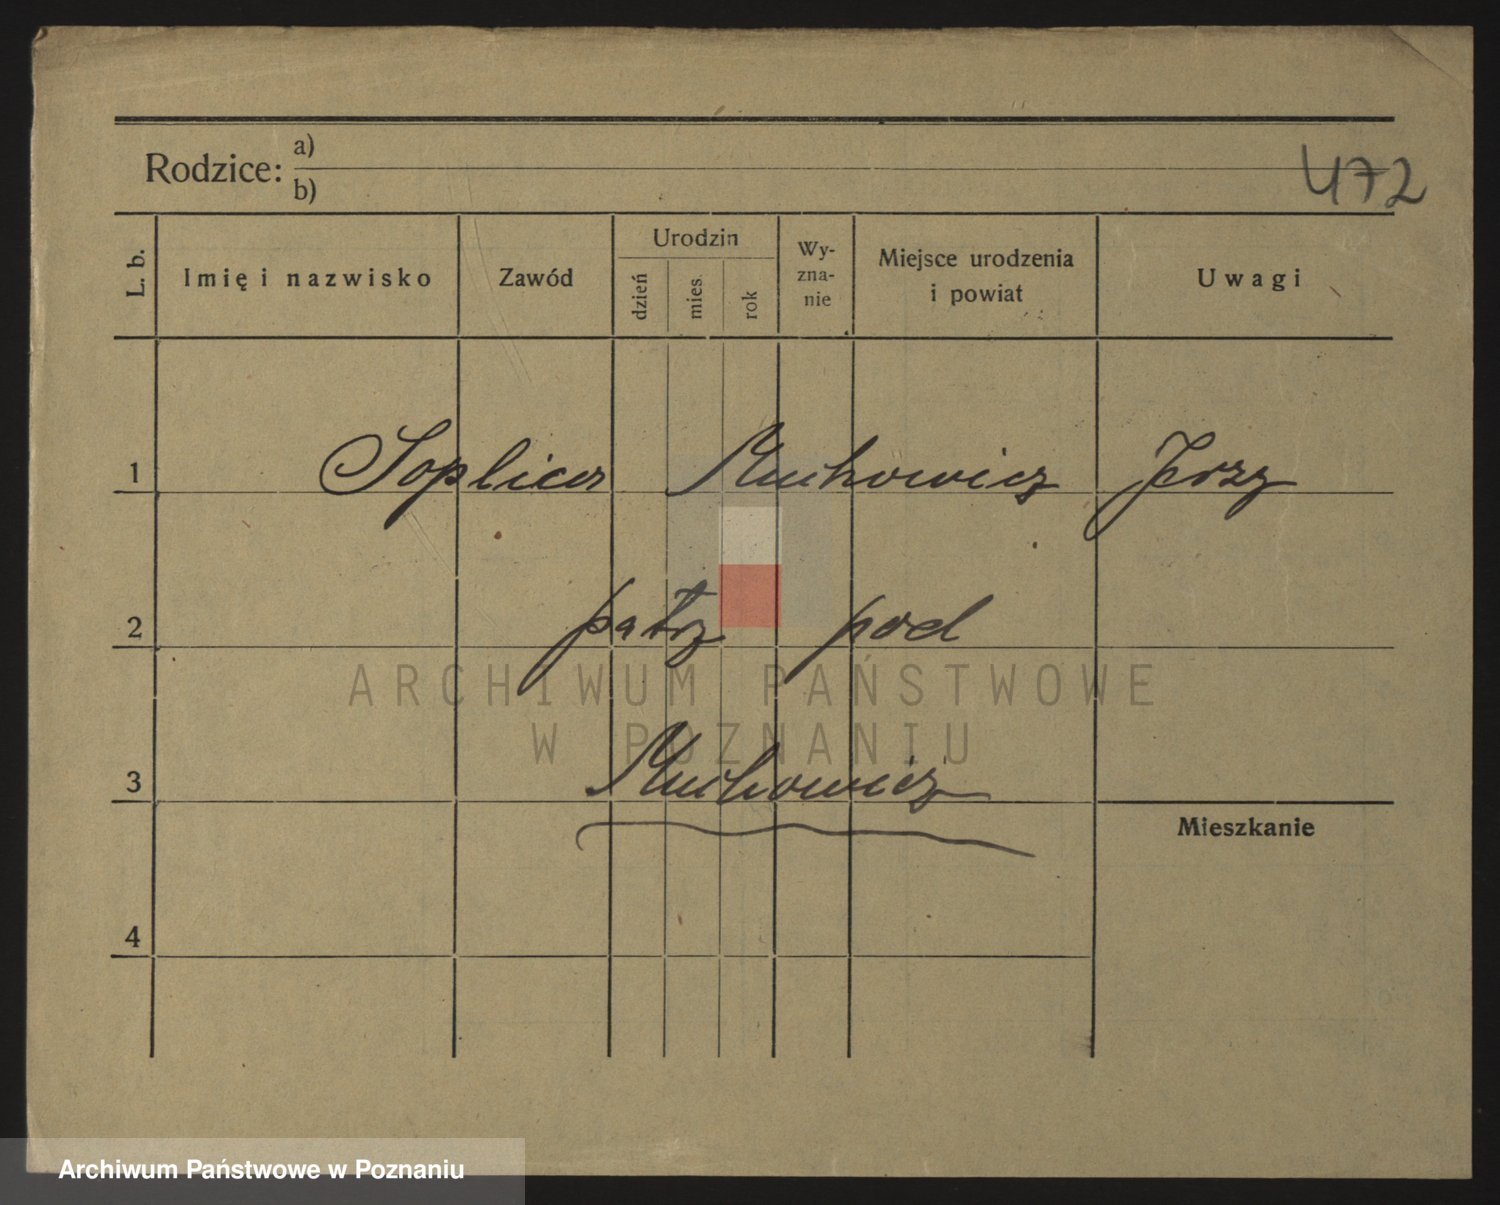 Rodzice: a)
b)
472
L. b.
Imię i nazwisko
Zawód
Urodzin
dzień
mies.
rok
Wy-
zna-
nie
Miejsce urodzenia
i powiat
Uwagi
1
Soplica Muchowicz Jerzy
2
patrz pod
ARCHIWUM PAŃSTWOWE
W POZNANIU
3
Muchowicz
Mieszkanie
4
Archiwum Państwowe w Poznaniu